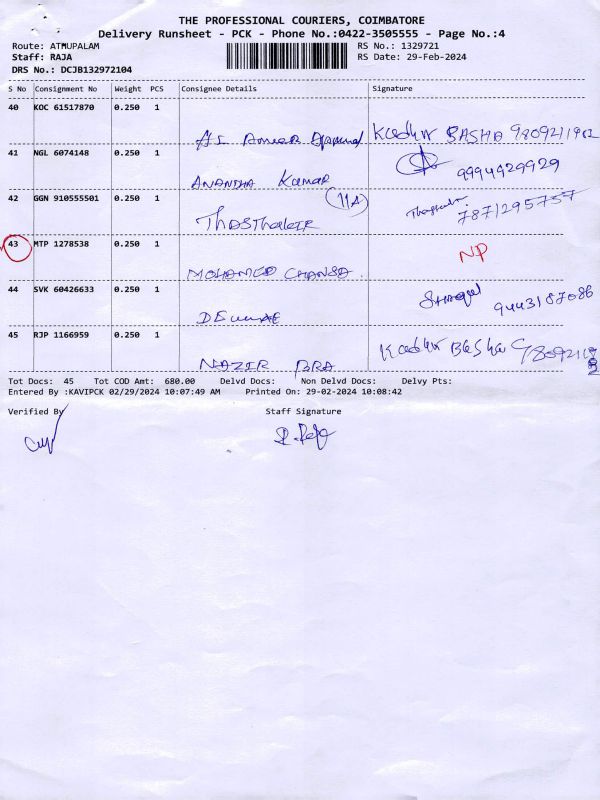 THE PROFESSIONAL COURIERS, COIMBATORE
Delivery Runsheet - PCK - Phone No.:0422-3505555 - Page No.:4
Route: ATHUPALAM RS No.: 1329721
Staff: RAJA RS Date: 29-Feb-2024
DRS No.: DCJB132972104
S No Consignment No Weight PCS Consignee Details Signature
40 KOC 61517870 0.250 1
Kadhar BASHA
41 NGL 6074148 0.250 1
9994929929
ANANDHA Kumar
42 GGN 910555501 0.250 1
11A
7871295757
43 MTP 1278538 0.250 1
NP
MOHAMED
44 SVK 60426633 0.250 1
9443187086
45 RJP 1166959 0.250 1
Kadhar Basha
NAZIR
Tot Docs: 45 Tot COD Amt: 680.00 Delvd Docs: Non Delvd Docs: Delvy Pts:
Entered By :KAVIPCK 02/29/2024 10:07:49 AM Printed On: 29-02-2024 10:08:42
Verified By Staff Signature
R. Raja